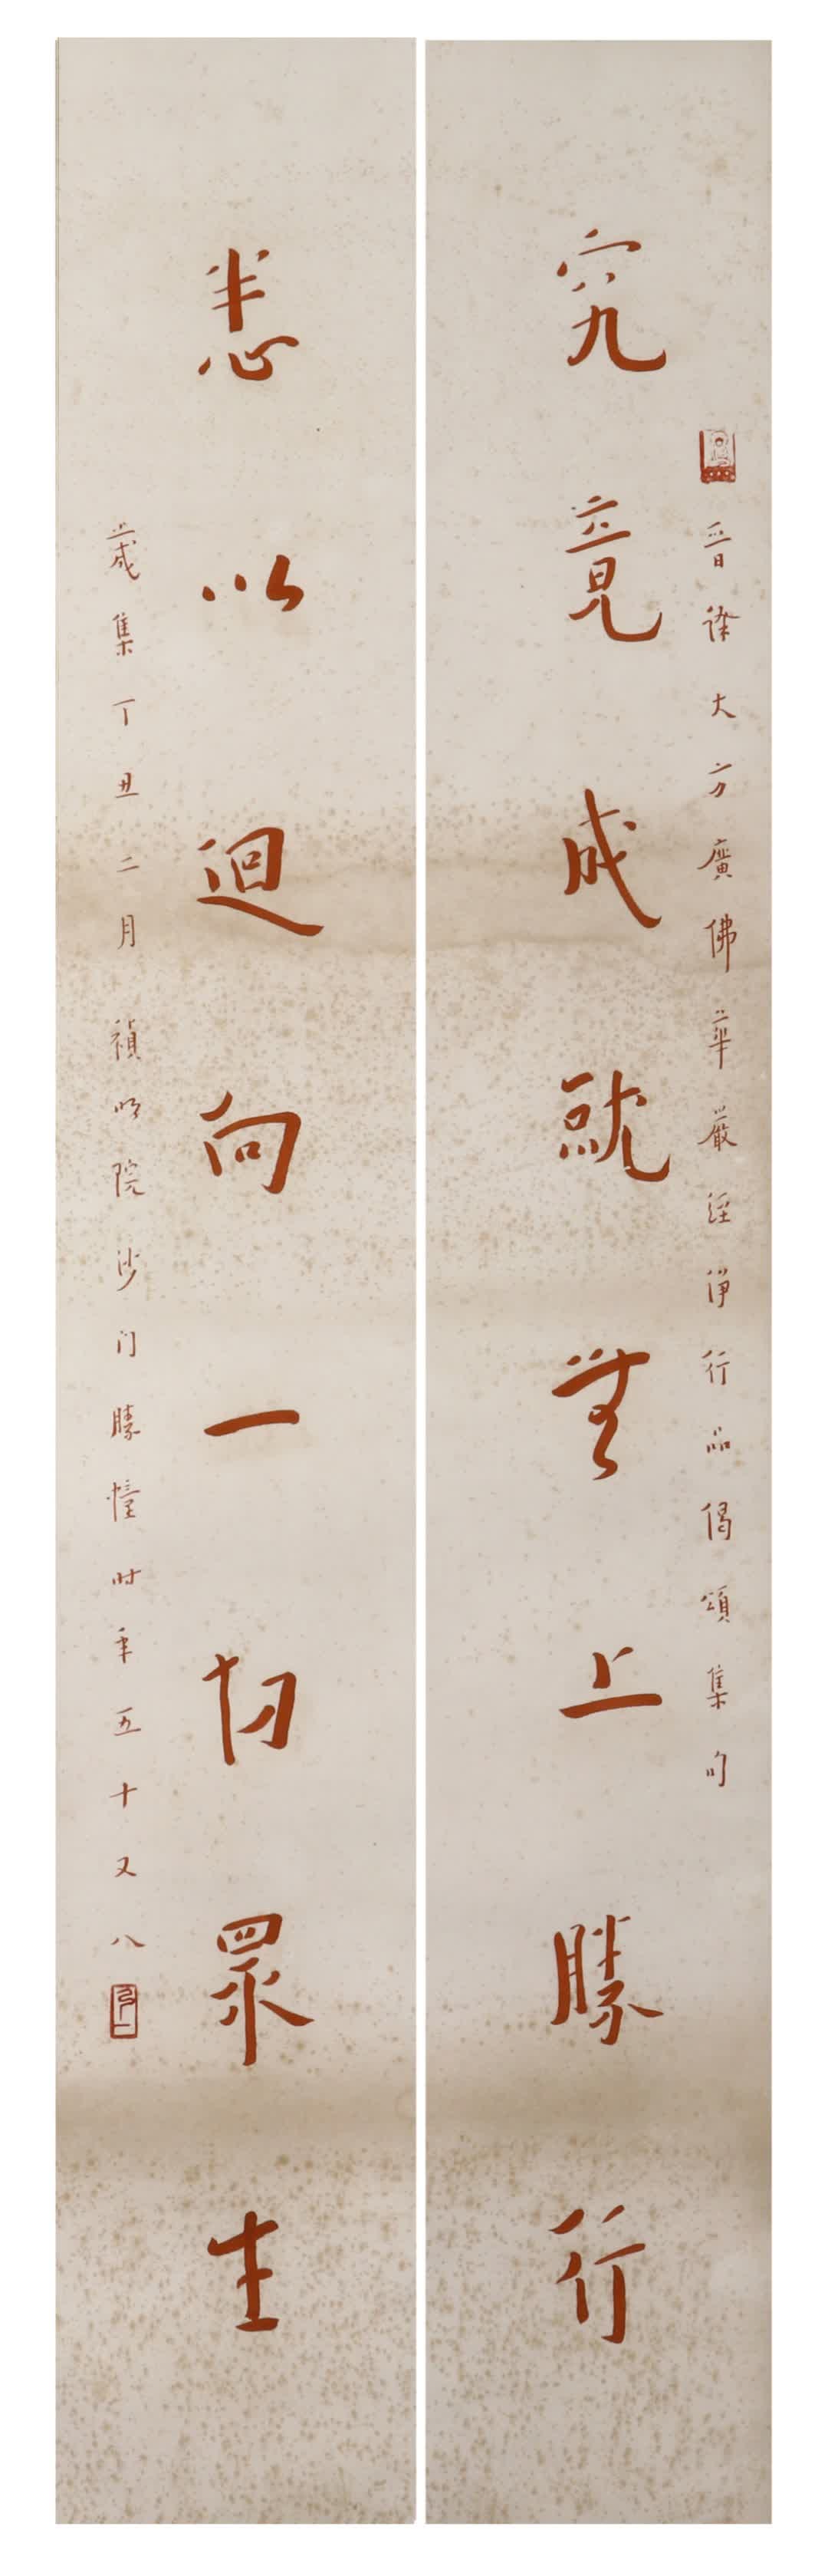 晉譯大方廣佛華嚴經淨行品偈頌集句
究竟成就無上勝行
悉以迴向一切眾生
歲集丁丑二月禎明院沙门勝幢时年五十又八